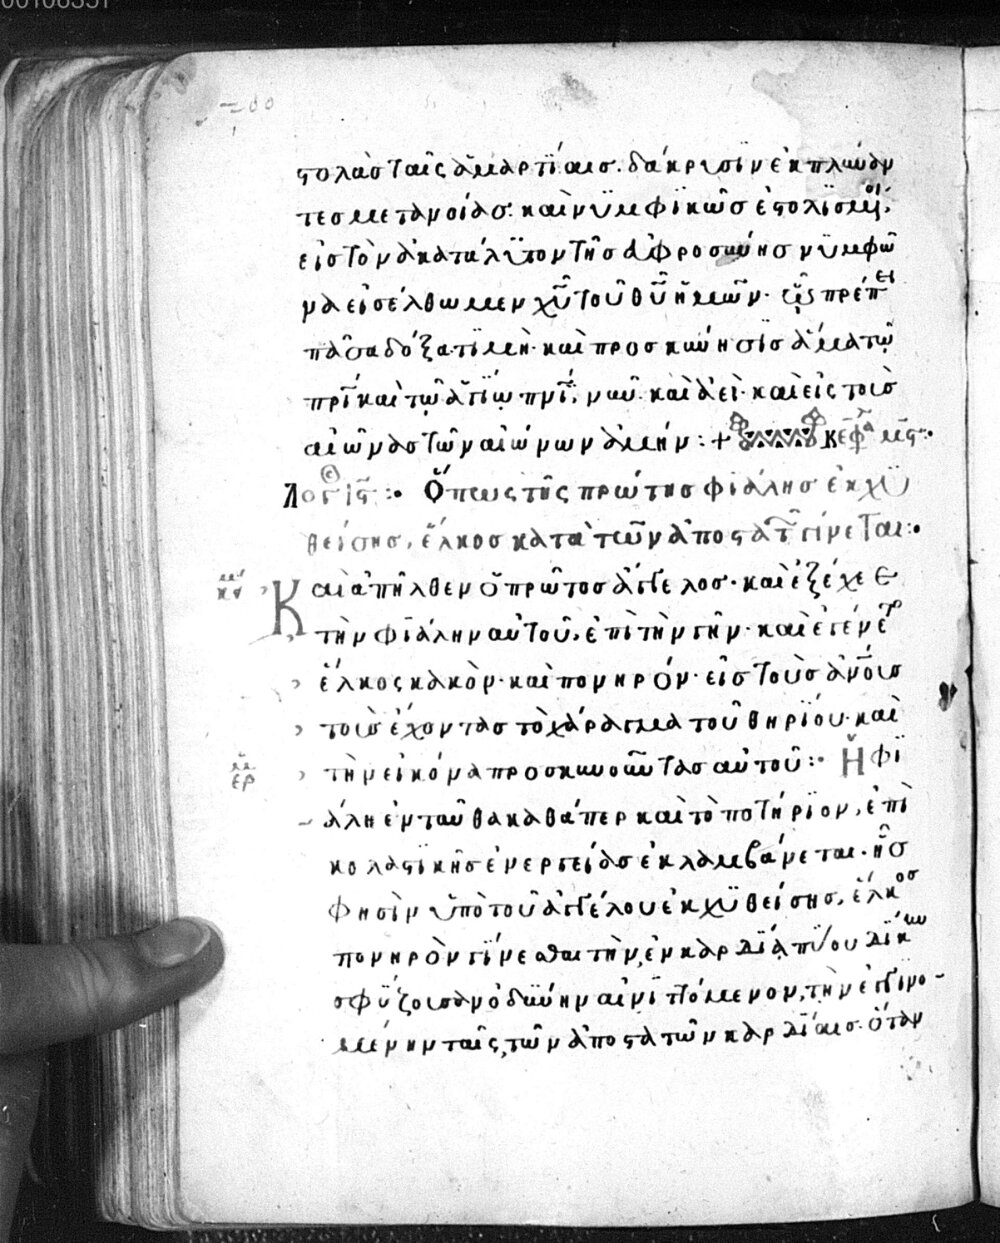 στολὰσ ταῖς ἁμαρτίαισ· δάκρυσϊν ἐκπλύναν
τεσ μετανοίασ· καὶ νϋμφϊκῶσ ἐστολϊσμένοι·
εἰσ τὸν ἀκατάλϋτον τῆσ ἀφροσύνησ νϋμφῶ
να εἰσέλθωμεν χυ τοῦ θυ ἡμῶν· ὧ πρέπει
πᾶσα δόξα τϊμὴ· καὶ προσκύνησϊσ ἅμα τῷ
πρὶ καὶ τῷ ἁγίῳ πνι, νῦν καὶ ἀεὶ· καὶ εἰς τοὺσ
αἰῶνασ τῶν αἰώνων ἀμήν : + κεφα μς :·
Λογ ις :· Ὅπως τῆς πρώτησ φϊάλησ ἐκχϋ
θείσησ, ἕλκοσ κατὰ τῶν ἀποστατ γίνεται :·
Καὶ ἀπῆλθεν ὁ πρῶτοσ ἄγγελοσ· καὶ ἐξέχεε
τὴν φϊάλην αὐτοῦ, ἐπὶ τὴν γῆν· καὶ ἐγένετο
ἕλκος κακὸν· καὶ πονηρόν· εἰσ τοὺσ ἀνουσ
τοὺσ ἔχοντασ τὸ χάραγμα τοῦ θηρϊου· καὶ
τὴν εἰκόνα προσκυνοῦντασ αὐτοῦ :· Ἡ φϊ
άλη ἐνταῦθα καθάπερ καὶ τὸ ποτήρϊον, ἐπὶ
κολαστϊκῆσ ἐνεργείασ ἐκλαμβάνεται· ἧσ
φησὶν ὑπὸ τοῦ ἀγγέλου ἐκχϋθείσησ, ἕλκοσ
πονηρὸν γϊνεσθαι τὴν, ἐν καρδίᾳ δίκην
σφϋζουσαν ὀδύνην αἰνϊττόμενον, τὴν ἐγγϊνο-
μένην ταῖς, τῶν ἀποστατῶν καρδίαισ· ὅταν